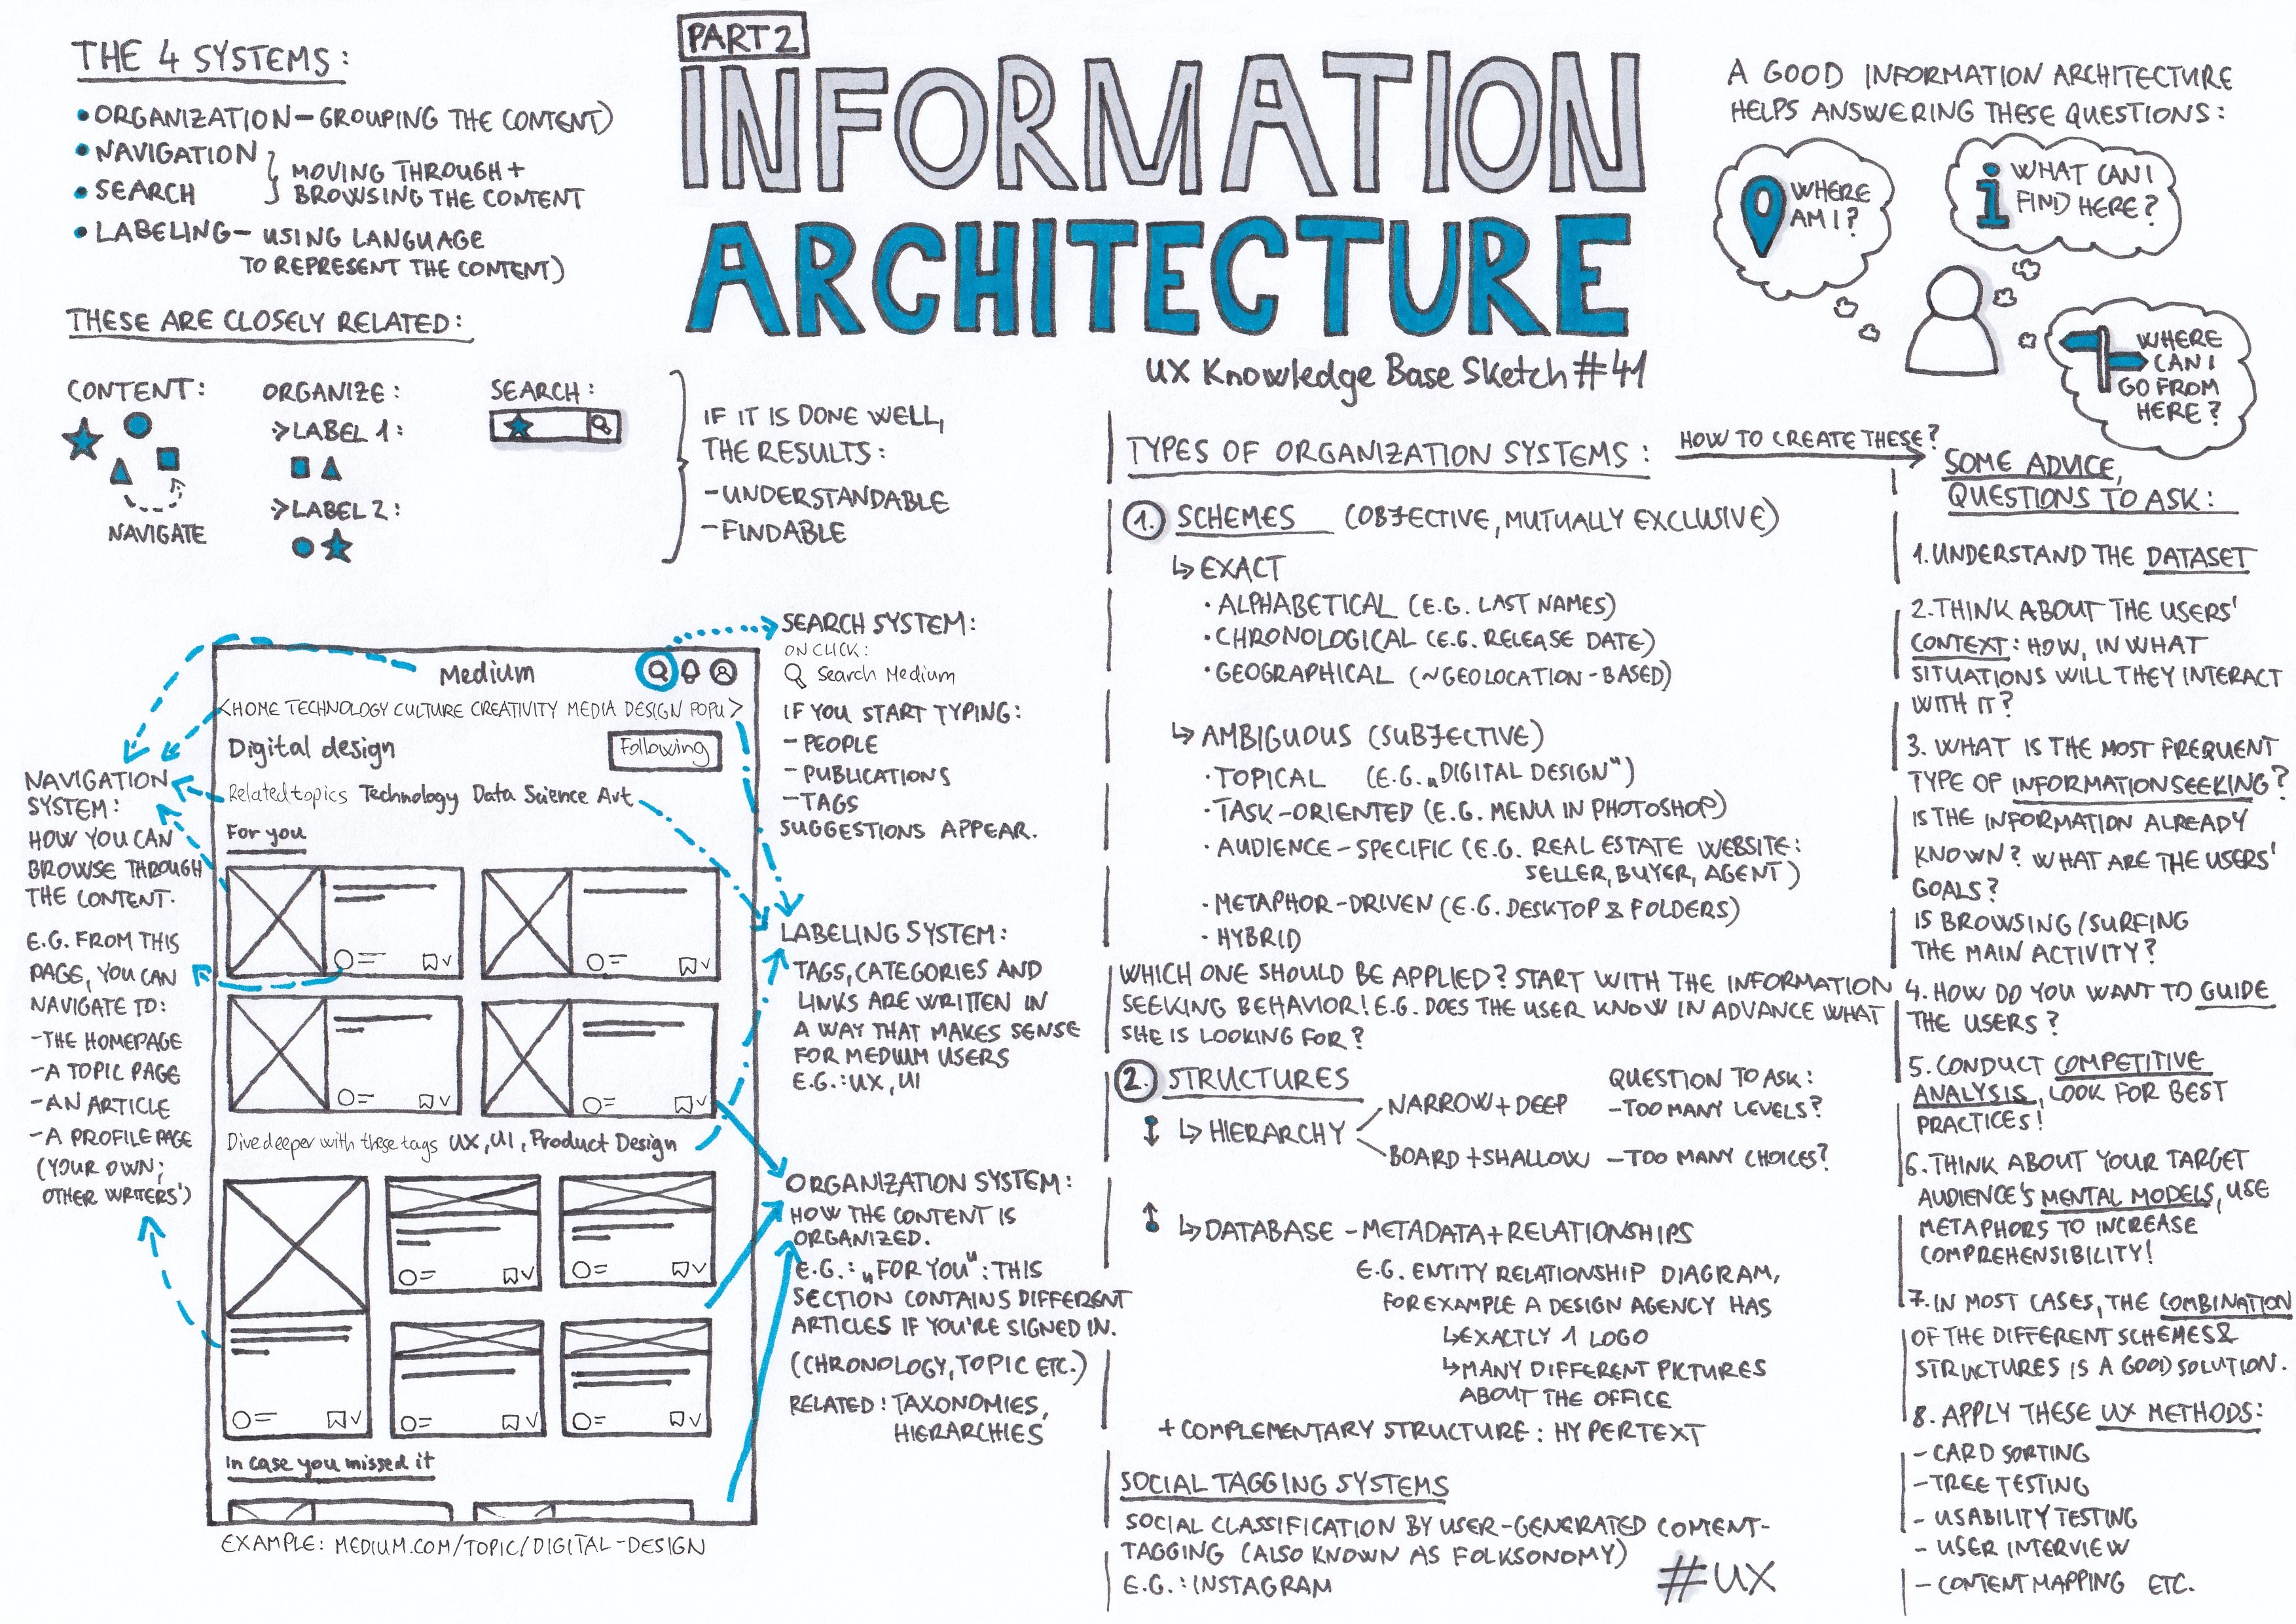 PART 2
INFORMATION
ARCHITECTURE
UX Knowledge Base Sketch #41
THE 4 SYSTEMS:
• ORGANIZATION – GROUPING THE CONTENT)
• NAVIGATION
• SEARCH
MOVING THROUGH +
BROWSING THE CONTENT
• LABELING – USING LANGUAGE
TO REPRESENT THE CONTENT)
THESE ARE CLOSELY RELATED:
CONTENT:
NAVIGATE
ORGANIZE:
>LABEL 1:
>LABEL 2:
SEARCH:
IF IT IS DONE WELL,
THE RESULTS:
-UNDERSTANDABLE
-FINDABLE
Medium
<HOME TECHNOLOGY CULTURE CREATIVITY MEDIA DESIGN POPU>
Digital design
Following
Related topics Technology Data Science Art
For you
Dive deeper with these tags UX, UI, Product Design
In case you missed it
EXAMPLE: MEDIUM.COM/TOPIC/DIGITAL-DESIGN
NAVIGATION
SYSTEM:
HOW YOU CAN
BROWSE THROUGH
THE CONTENT.
E.G. FROM THIS
PAGE, YOU CAN
NAVIGATE TO:
-THE HOMEPAGE
-A TOPIC PAGE
-AN ARTICLE
-A PROFILE PAGE
(YOUR OWN;
OTHER WRITERS')
SEARCH SYSTEM:
ON CLICK:
Search Medium
IF YOU START TYPING:
- PEOPLE
- PUBLICATIONS
-TAGS
SUGGESTIONS APPEAR.
LABELING SYSTEM:
TAGS, CATEGORIES AND
LINKS ARE WRITTEN IN
A WAY THAT MAKES SENSE
FOR MEDIUM USERS
E.G.: UX, UI
ORGANIZATION SYSTEM:
HOW THE CONTENT IS
ORGANIZED.
E.G.: „FOR YOU": THIS
SECTION CONTAINS DIFFERENT
ARTICLES IF YOU'RE SIGNED IN.
(CHRONOLOGY, TOPIC ETC.)
RELATED: TAXONOMIES,
HIERARCHIES
TYPES OF ORGANIZATION SYSTEMS:
1. SCHEMES (OBJECTIVE, MUTUALLY EXCLUSIVE)
↳ EXACT
· ALPHABETICAL (E.G. LAST NAMES)
· CHRONOLOGICAL (E.G. RELEASE DATE)
· GEOGRAPHICAL (~GEOLOCATION-BASED)
↳ AMBIGUOUS (SUBJECTIVE)
· TOPICAL (E.G. „DIGITAL DESIGN")
· TASK-ORIENTED (E.G. MENU IN PHOTOSHOP)
· AUDIENCE-SPECIFIC (E.G. REAL ESTATE WEBSITE:
SELLER, BUYER, AGENT)
· METAPHOR-DRIVEN (E.G. DESKTOP & FOLDERS)
· HYBRID
WHICH ONE SHOULD BE APPLIED? START WITH THE INFORMATION
SEEKING BEHAVIOR! E.G. DOES THE USER KNOW IN ADVANCE WHAT
SHE IS LOOKING FOR?
2. STRUCTURES
QUESTION TO ASK:
↳ HIERARCHY
NARROW + DEEP -TOO MANY LEVELS?
BOARD + SHALLOW -TOO MANY CHOICES?
↳ DATABASE - METADATA + RELATIONSHIPS
E.G. ENTITY RELATIONSHIP DIAGRAM,
FOR EXAMPLE A DESIGN AGENCY HAS
↳ EXACTLY 1 LOGO
↳ MANY DIFFERENT PICTURES
ABOUT THE OFFICE
+ COMPLEMENTARY STRUCTURE: HYPERTEXT
SOCIAL TAGGING SYSTEMS
SOCIAL CLASSIFICATION BY USER-GENERATED CONTENT-
TAGGING (ALSO KNOWN AS FOLKSONOMY)
E.G.: INSTAGRAM
#UX
A GOOD INFORMATION ARCHITECTURE
HELPS ANSWERING THESE QUESTIONS:
WHERE
AM I?
WHAT CAN I
FIND HERE?
WHERE
CAN I
GO FROM
HERE?
HOW TO CREATE THESE?
SOME ADVICE,
QUESTIONS TO ASK:
1. UNDERSTAND THE DATASET
2. THINK ABOUT THE USERS'
CONTEXT: HOW, IN WHAT
SITUATIONS WILL THEY INTERACT
WITH IT?
3. WHAT IS THE MOST FREQUENT
TYPE OF INFORMATION SEEKING?
IS THE INFORMATION ALREADY
KNOWN? WHAT ARE THE USERS'
GOALS?
IS BROWSING/SURFING
THE MAIN ACTIVITY?
4. HOW DO YOU WANT TO GUIDE
THE USERS?
5. CONDUCT COMPETITIVE
ANALYSIS, LOOK FOR BEST
PRACTICES!
6. THINK ABOUT YOUR TARGET
AUDIENCE'S MENTAL MODELS, USE
METAPHORS TO INCREASE
COMPREHENSIBILITY!
7. IN MOST CASES, THE COMBINATION
OF THE DIFFERENT SCHEMES &
STRUCTURES IS A GOOD SOLUTION.
8. APPLY THESE UX METHODS:
- CARD SORTING
- TREE TESTING
- USABILITY TESTING
- USER INTERVIEW
- CONTENT MAPPING ETC.